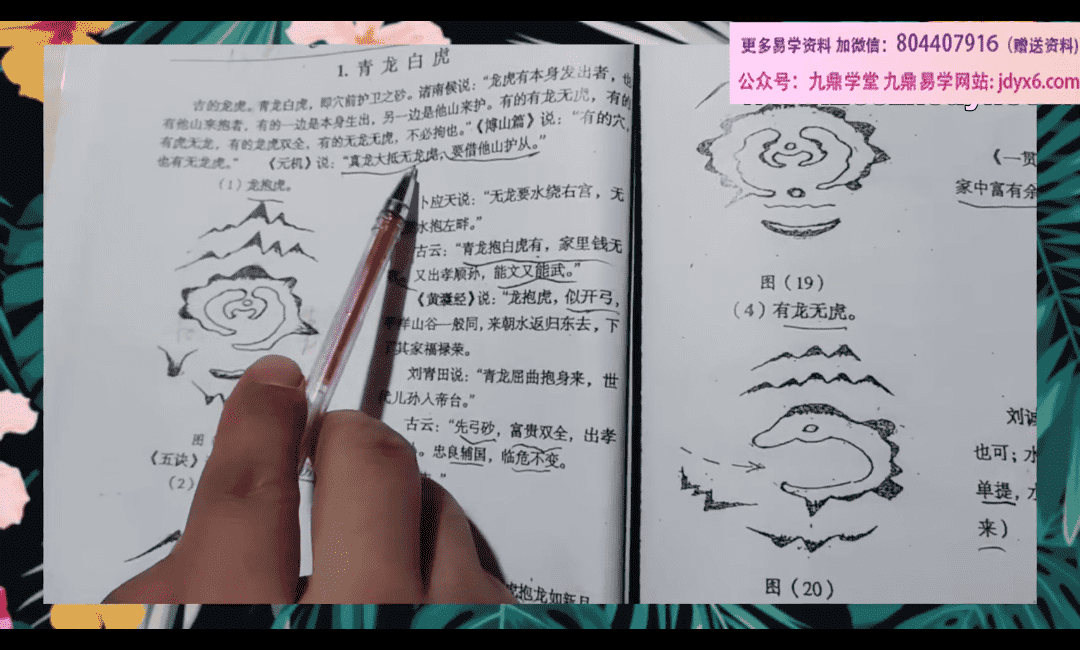 更多易学资料 加微信：804407916（赠送资料）
公众号：九鼎学堂 九鼎易学网站：jdyx6.com
1. 青龙白虎
古的龙虎。青龙白虎，即穴前护卫之砂。诸南候说：“龙虎有本身发出者，也
有他山来抱者，有的一边是本身生出，另一边是他山来护。有的有龙无虎，有的
有虎无龙，有的龙虎双全，有的无龙无虎，不必拘也。”《博山篇》说：“有的穴，
也有无龙虎。” 《元机》说：“真龙大抵无龙虎，要借他山护从。”
（1）龙抱虎。
卜应天说：“无龙要水绕右宫，无
水抱左畔。”
古云：“青龙抱白虎有，家里钱无
又出孝顺孙，能文又能武。”
《黄囊经》说：“龙抱虎，似开弓，
山谷一般同，来朝水返归东去，下
其家福禄荣。
刘青田说：“青龙屈曲抱身来，世
代儿孙人帝台。”
古云：“先弓砂，富贵双全，出孝
忠良辅国，临危不变。
图
《五诀》
（2）
抱龙如新月
图（19）
（4）有龙无虎。
图（20）
《一贯
家中富有余
刘诚
也可；水
单提，水
来）